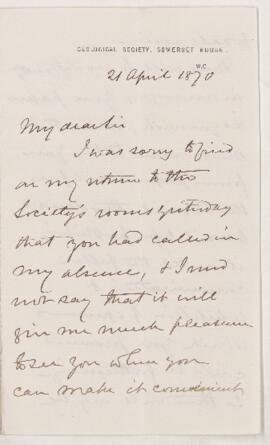 GEOLOGICAL SOCIETY, SOMERSET HOUSE.
W.C.
21 April 1870
My dear Sir
I was sorry to find
on my return to the
Society's rooms yesterday
that you had called in
my absence, & I need
not say that it will
give me much pleasure
to see you when you
can make it convenient